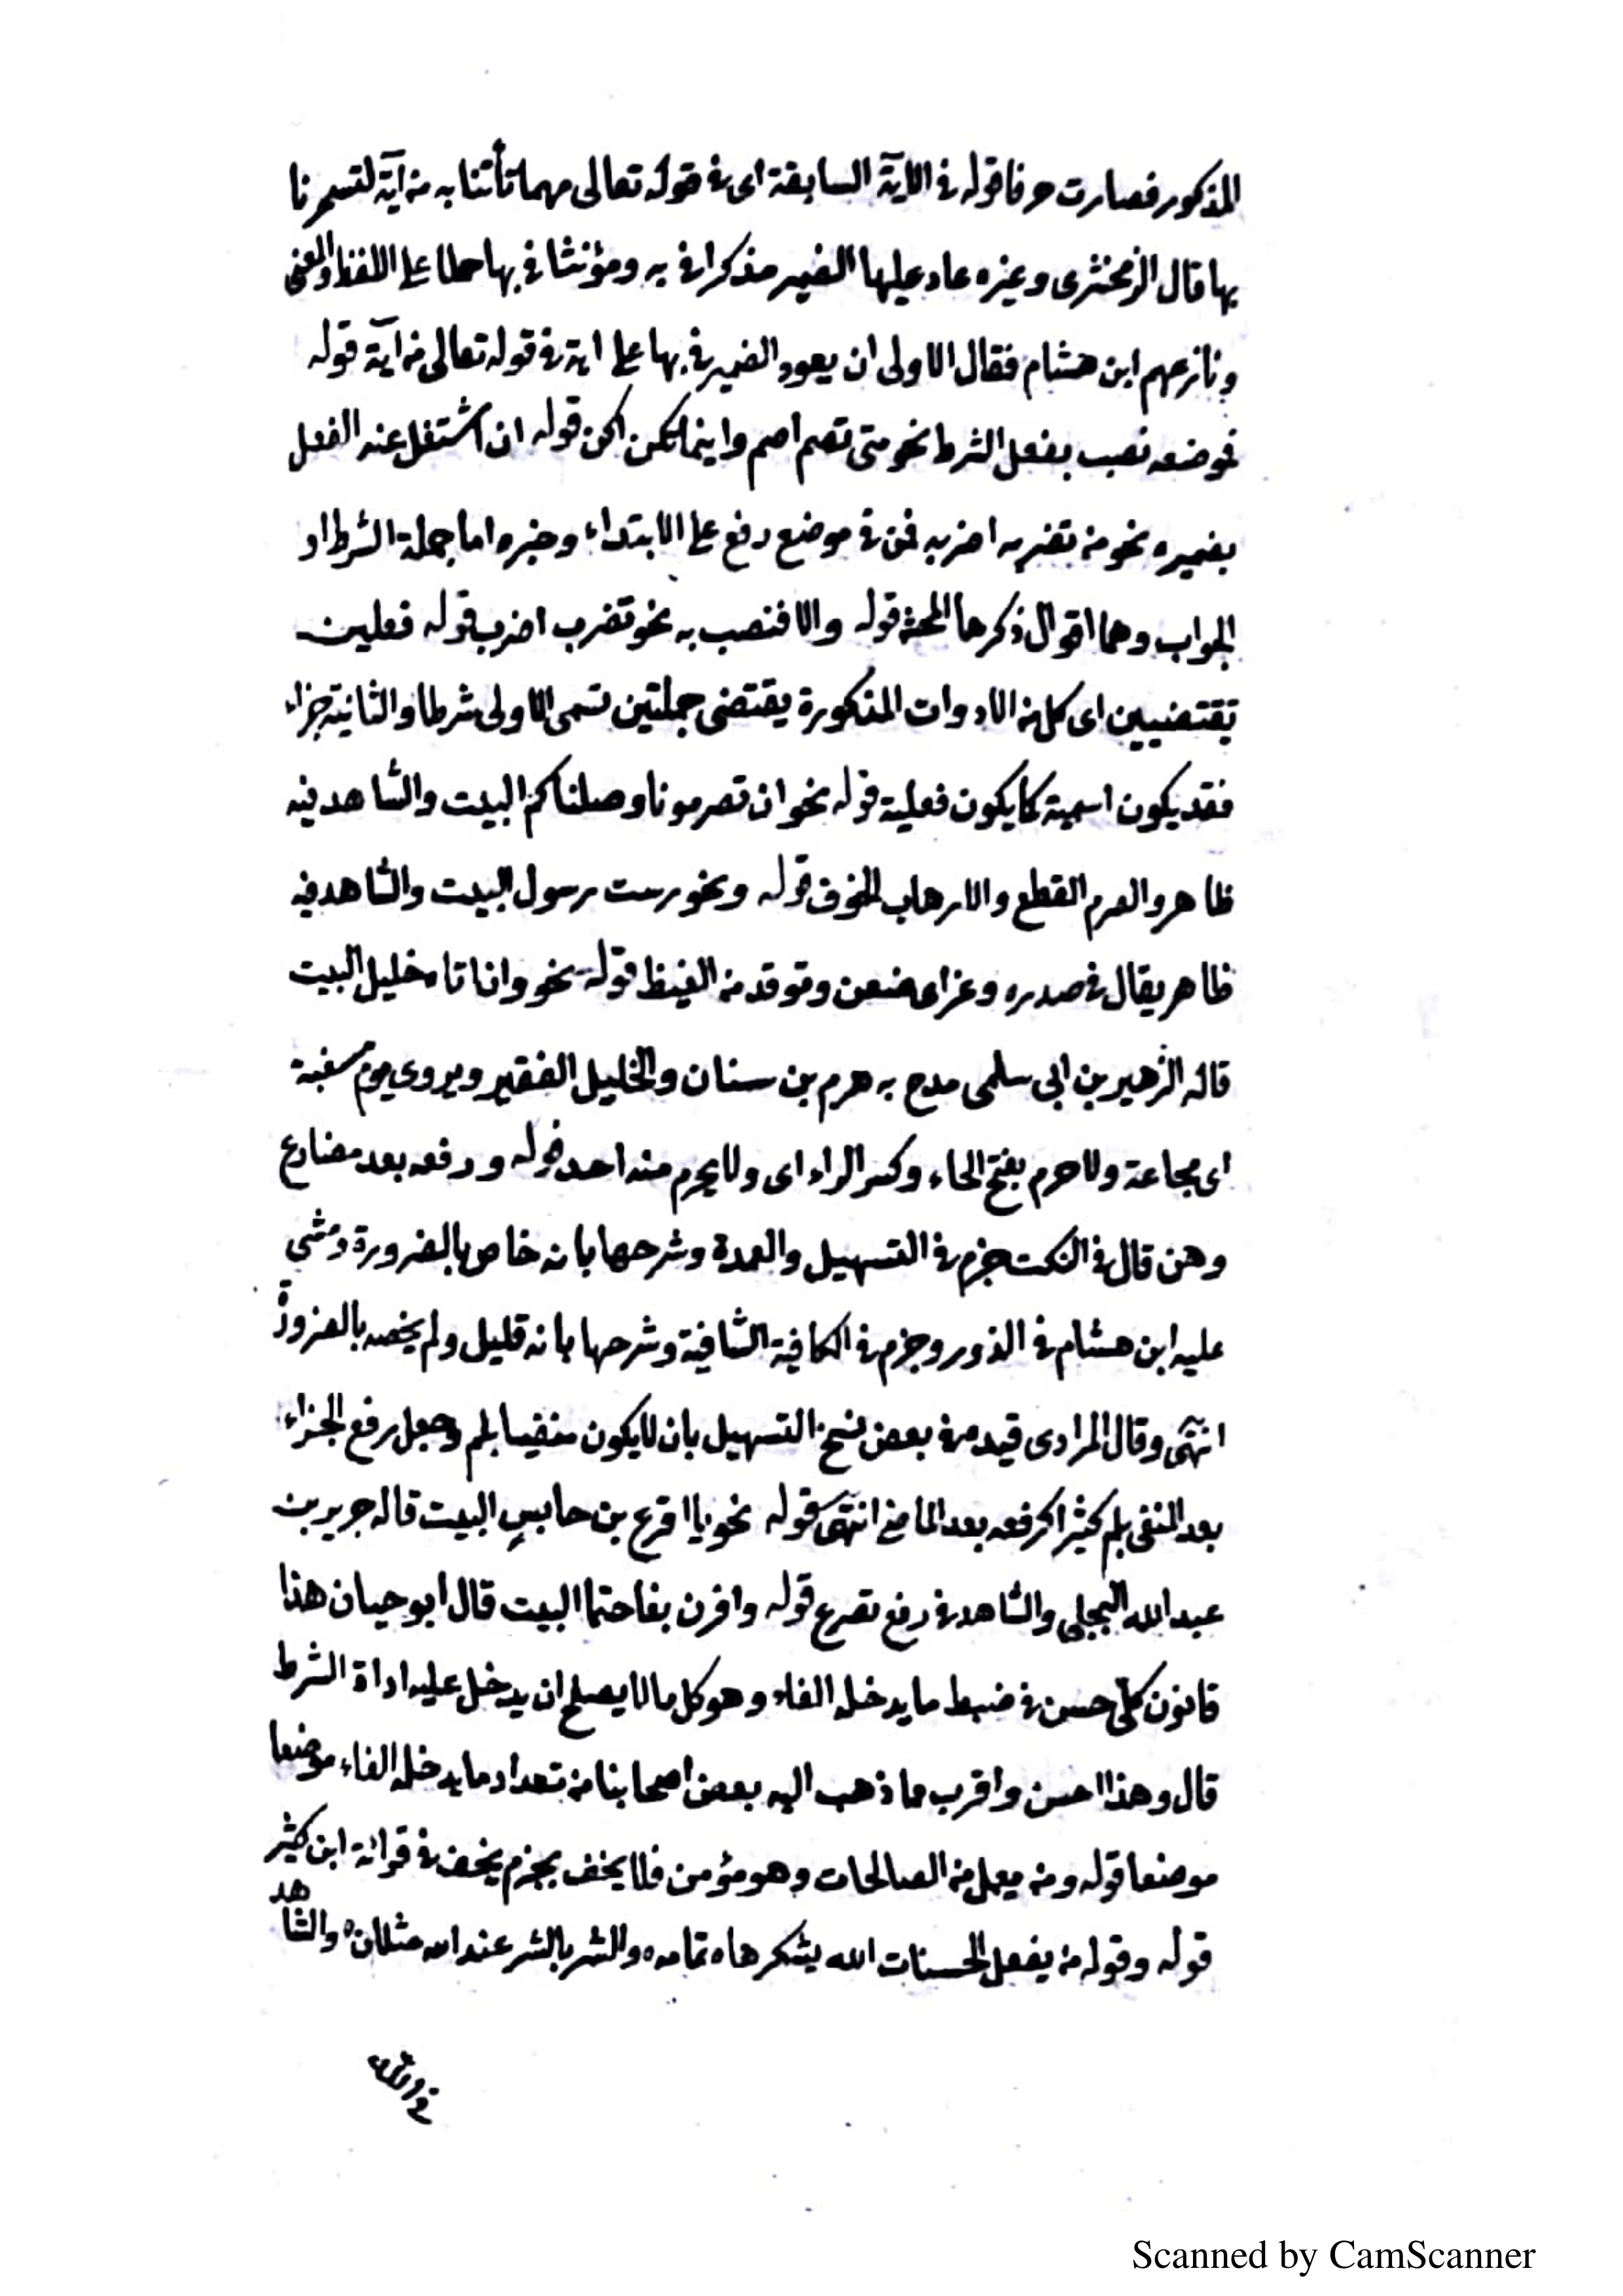 المذكور فصارت حرفا قوله في الاية السابقة اى في قوله تعالى مهما تأتنا به من آية لتسحرنا
بها قال الزمخشرى وغيره عاد عليها الضمير مذكرا في به ومؤنثا في بها حملا على اللفظ والمعنى
ونازعهم ابن هشام فقال الاولى ان يعود الضمير في بها على اية في قوله تعالى من آية قوله
فموضعه نصب بفعل الشرط نحو متى تصم اصم واينما تكن اكن قوله ان اشتغل عنه الفعل
بضميره نحو من تضربه اضربه فمن في موضع رفع على الابتداء وخبره اما جملة الشرط او
الجواب وهما اقوال ذكرها قوله والا فنصب به نحو تضرب اضرب قوله فعلين
تقتضيين اى كل من الادوات المذكورة يقتضى جملتين تسمى الاولى شرطا والثانية جزاء
فقد يكون اسمية كما يكون فعلية قوله نحو ان تصرمونا وصلناكم البيت والشاهد فيه
ظاهر والصرم القطع والارهاب الخوف قوله ونحو دست رسول البيت والشاهد فيه
ظاهر يقال في صدره وغر اى ضغن وتوقد من الغيظ قوله نحو وان اتاه خليل البيت
قاله الزهير بن ابى سلمى مدح به هرم بن سنان والخليل الفقير ويروى يوم مسغبة
اى مجاعة ولا حرم بفتح الحاء وكسر الراء اى ولا يحرم منه احد قوله ورفعه بعد مضارع
وهن قال في النكت جزم في التسهيل والعمدة وشرحها بانه خاص بالضرورة ومشى
عليه ابن هشام في الذور وجزم في الكافية الشافية وشرحها بانه قليل ولم يخصه بالضرورة
انتهى وقال المرادى قيده في بعض نسخ التسهيل بان لا يكون منفيا بلم وجعل رفع الجزاء
بعد المنفى بلم كثيرا كرفعه بعد الماضى انتهى قوله نحو يا اقرع بن حابس البيت قاله جرير بن
عبد الله البجلى والشاهد في رفع تصرع قوله واقرن بفا حتما البيت قال ابو حيان هذا
قانون كلّى حسن في ضبط ما يدخله الفاء وهو كل ما لا يصلح ان يدخل عليه اداة الشرط
قال وهذا احسن واقرب مما ذهب اليه بعض اصحابنا من تعداد ما يدخله الفاء موضعا
موضعا قوله ومن يعمل من الصالحات وهو مؤمن فلا يخف بجزم يخف في قرائة ابن كثير
قوله وقوله من يفعل الحسنات الله يشكرها ه تمامه ه والشر بالشر عند الله مثلان ه والشاهد
Scanned by CamScanner